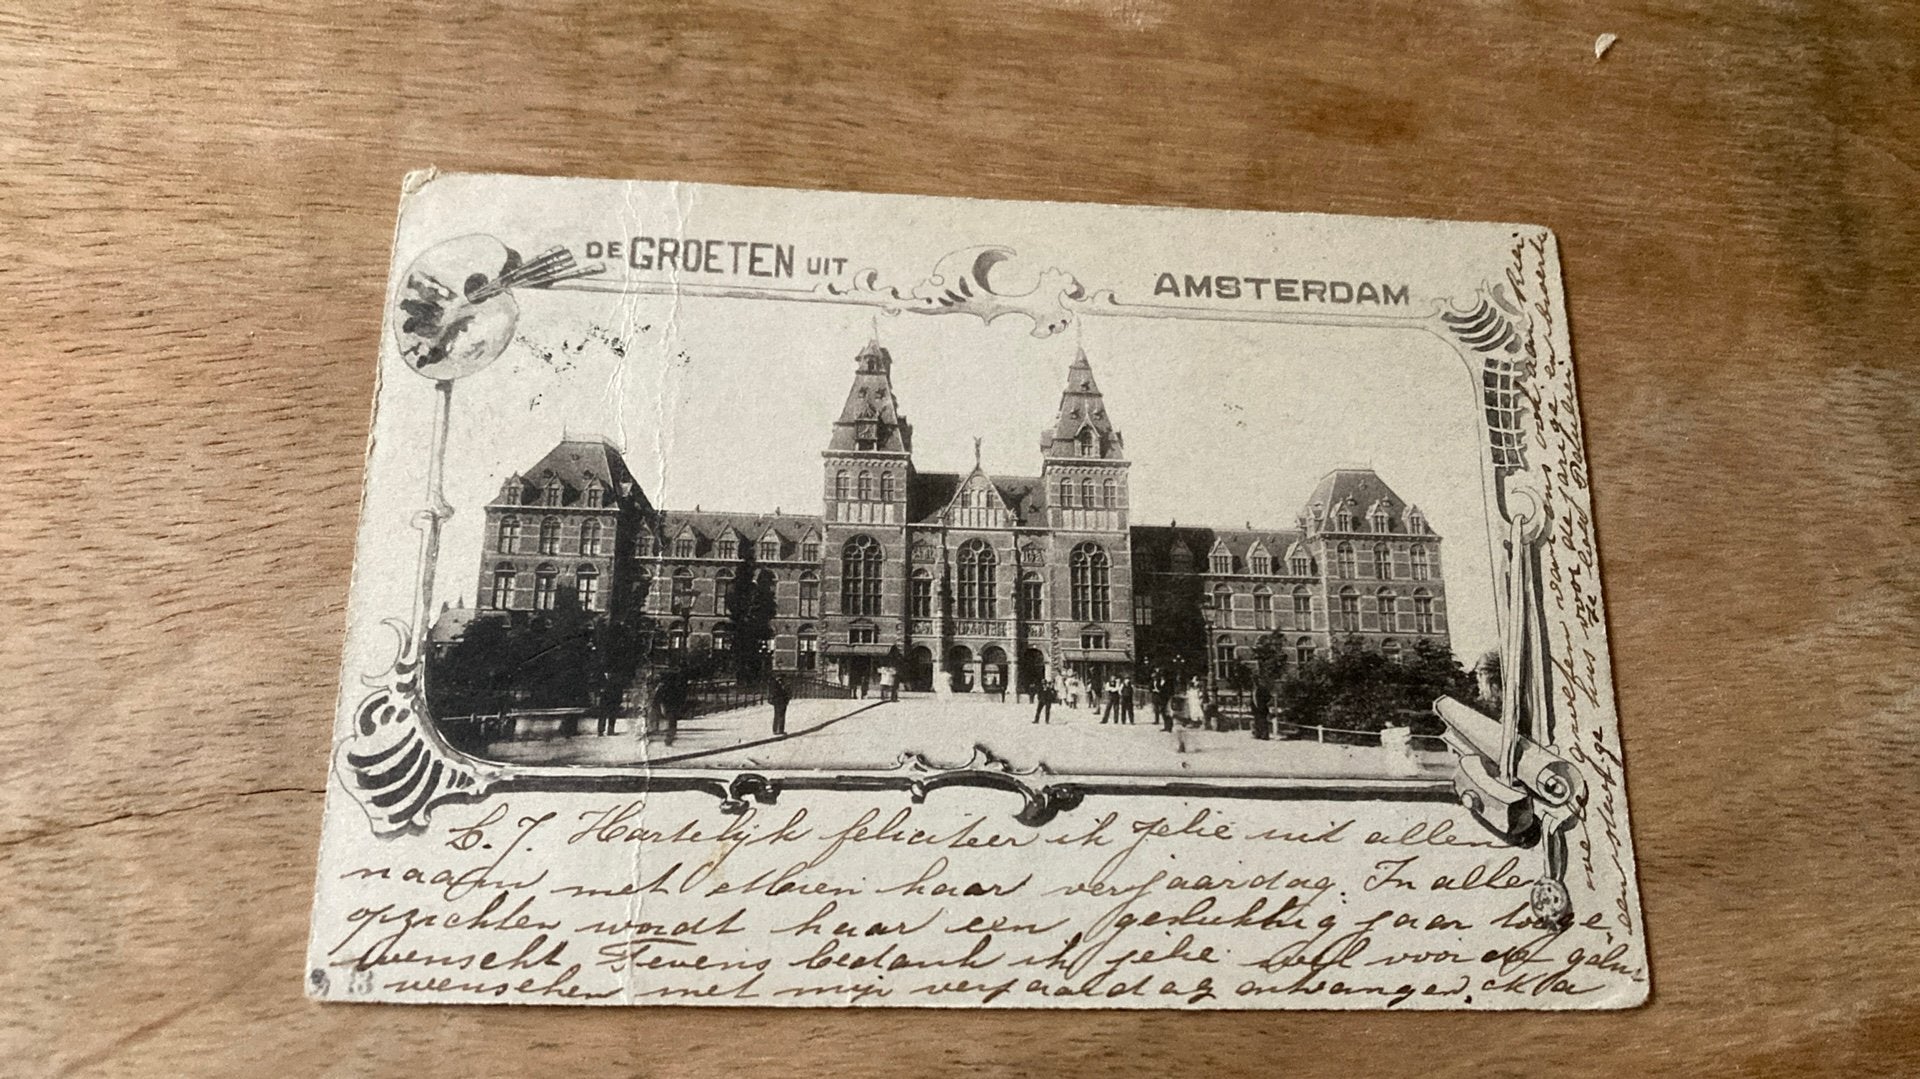 DE GROETEN UIT AMSTERDAM
Hartelijk feliciteer ik jelie uit allen
naam met haar verjaardag. In alle
opzichten wordt haar een gelukkig jaar toege
wenscht Tevens bedank ik jelie wel voor de geluk
wenschen met mijn verjaardag ontvangen.
vele groeten van ons ook aan hier
een nuttige voor de jarige en